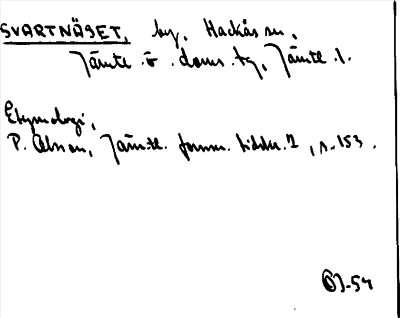 SVARTNÄSET, by, Hackås sn,
Jämtl. ö. doms. tg, Jämtl. l.
Etymologi,
P. Olsson, Jämtl. fornm. tidskr. 2, s. 153.